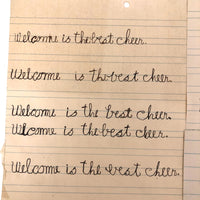 Welcome is the best cheer.
Welcome is the best cheer.
Welcome is the best cheer.
Welcome is the best cheer.
Welcome is the best cheer.